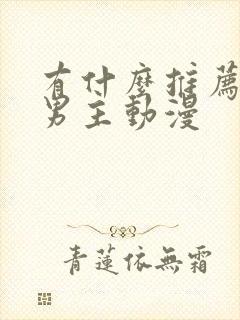 有什麼推薦
男主動漫
青蓮依無霜